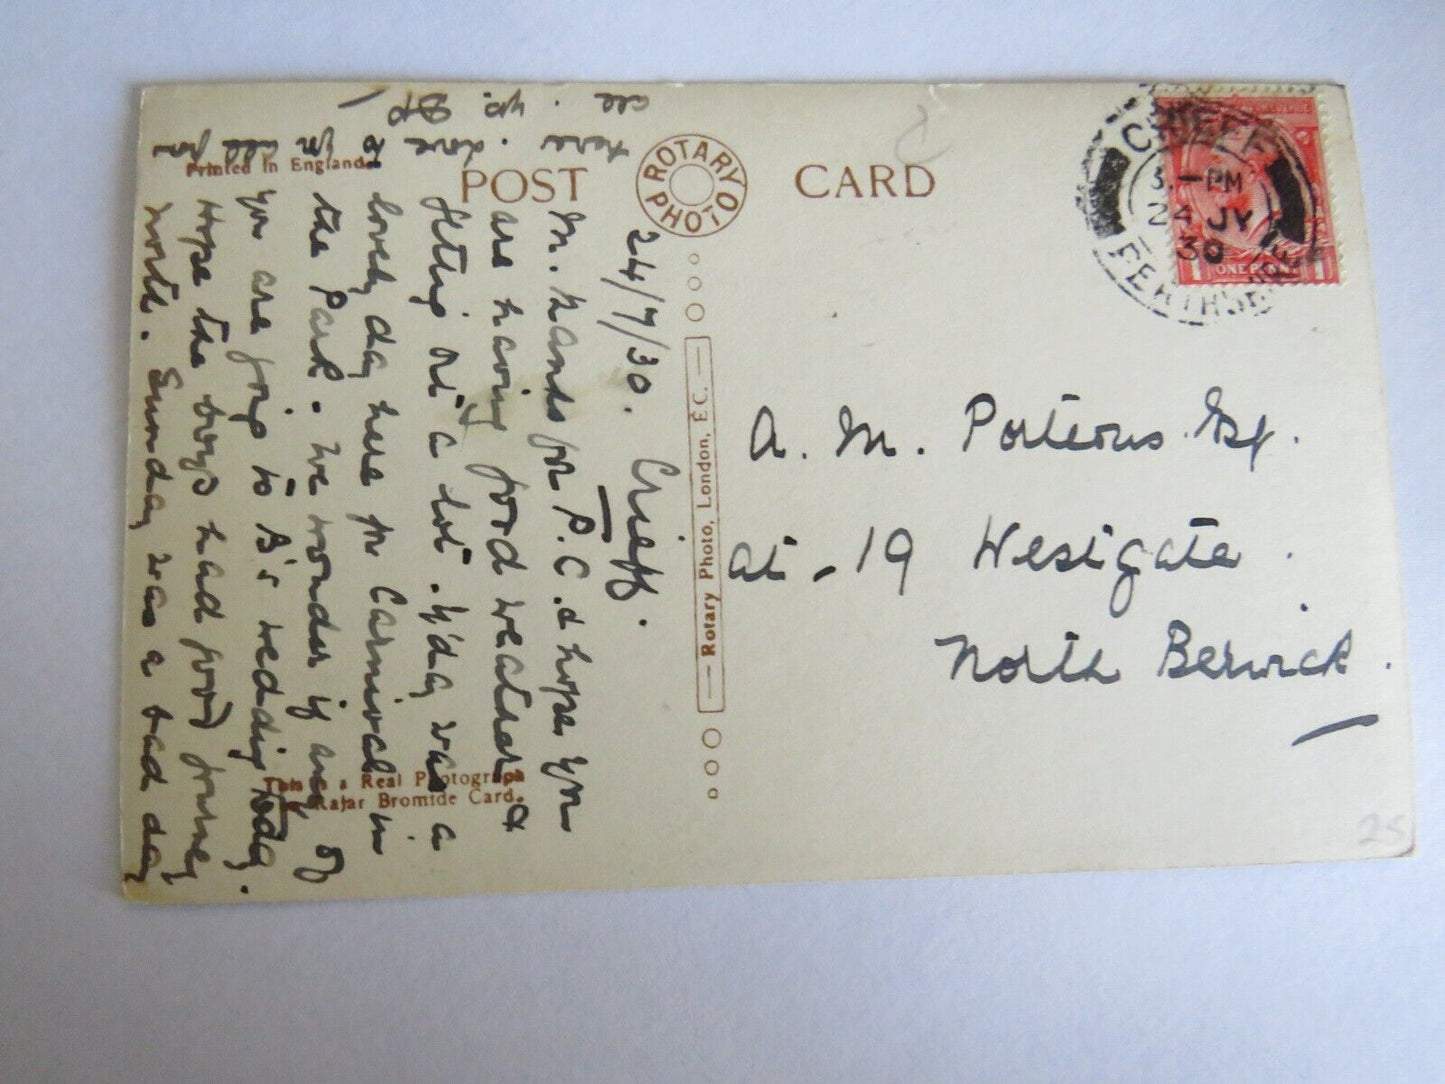 POST CARD
ROTARY PHOTO
Printed in England
CRIEFF
3.- PM
24 JY
30
PERTHSHIRE
ONE PENNY
24/7/30. Crieff.
M. thanks for P.C. & hope you
are having good weather &
getting out a lot. Y'day was a
lovely day here for Carnival in
the Park. We wonder if any of
you are going to B's wedding today.
Hope the boys had good journey
North. Sunday was a bad day
here. Love to you all from
all. yrs.
A. M. Porteous Esq.
at - 19 Westgate.
North Berwick.
Rotary Photo, London, E.C.
This is a Real Photograph
Rajar Bromide Card.
25